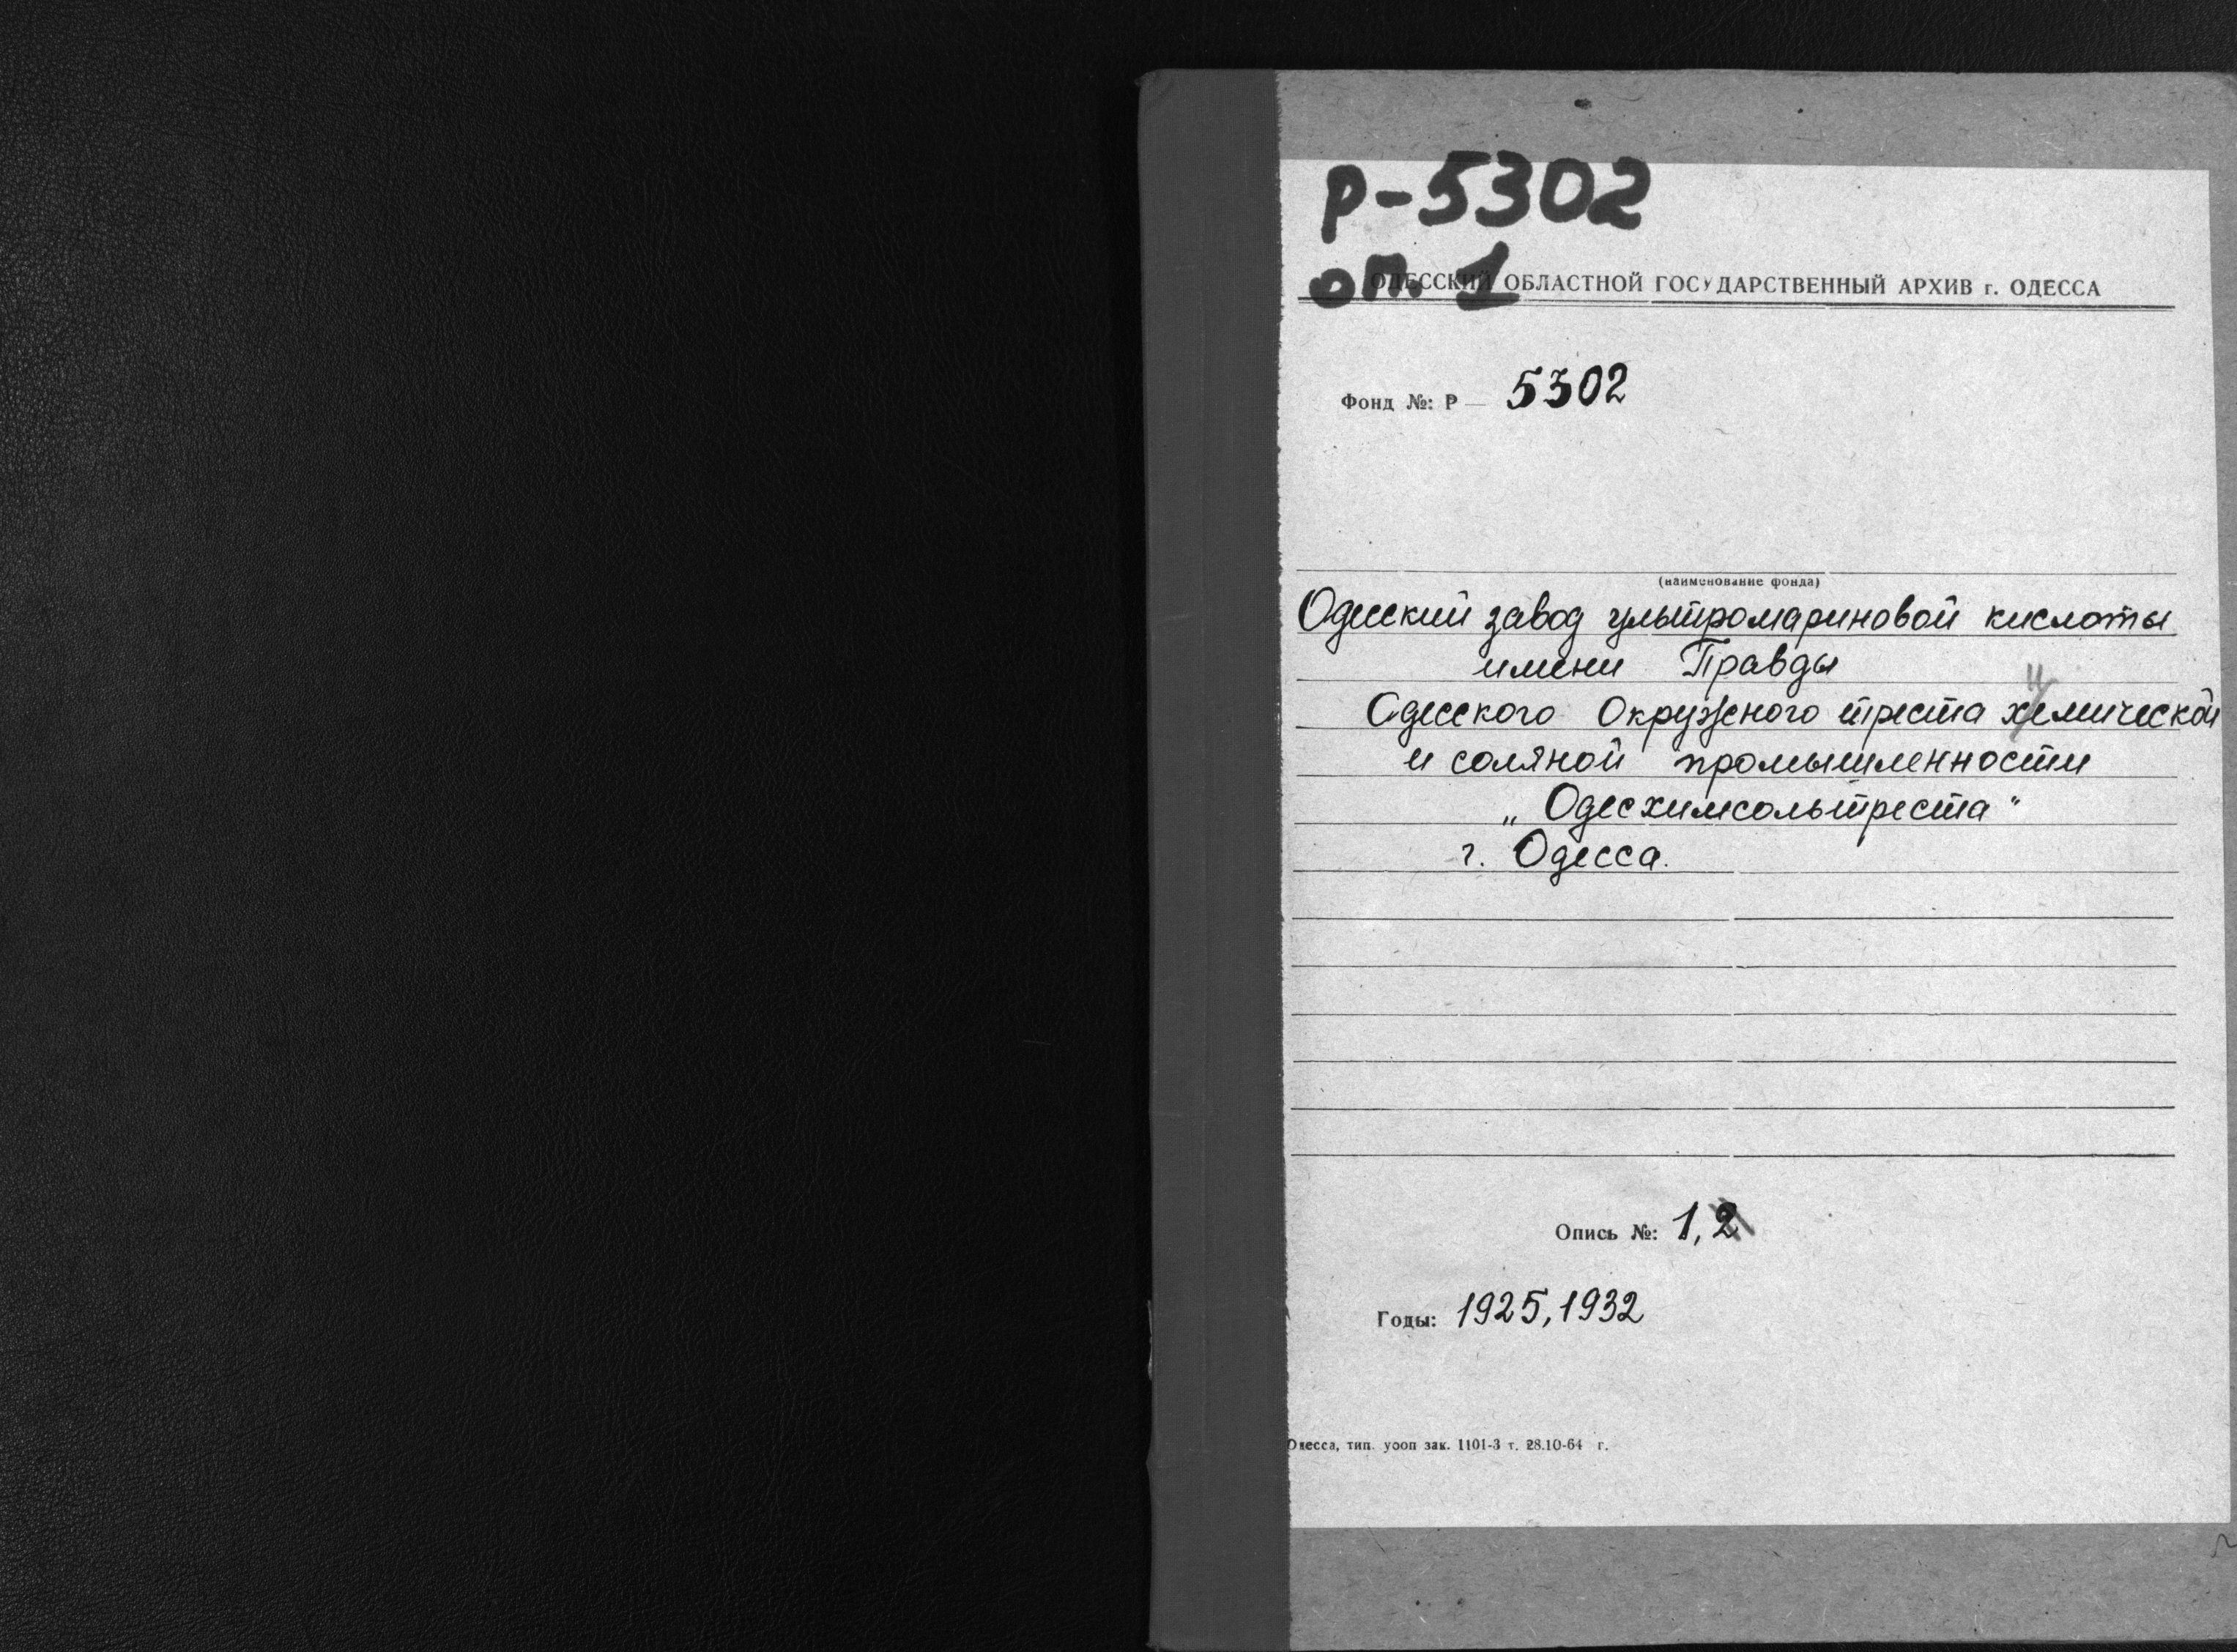 Р-5302
оп. 1
ОДЕССКИЙ ОБЛАСТНОЙ ГОСУДАРСТВЕННЫЙ АРХИВ г. ОДЕССА
Фонд №: Р — 5302
(наименование фонда)
Одесский завод ультромариновой кислоты
имени Правды
Одесского Окружного треста химической
и соляной промышленности
„Одесхимсольтреста"
г. Одесса.
Опись №: 1,2
Годы: 1925, 1932
Одесса, тип. уооп зак. 1101-3 т. 28.10-64 г.